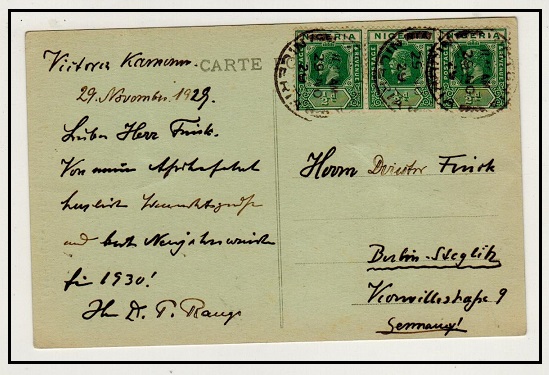 CARTE
NIGERIA NIGERIA NIGERIA
POSTAGE POSTAGE POSTAGE
Victoria Kamerun
29. November 1929.
Lieber Herr Finck.
Von meiner Afrikafahrt
herzliche Weihnachtsgrüße
und beste Neujahrswünsche
für 1930!
Ihr D. P. Range
Herrn Director Finck
Berlin-Steglitz
9
Germany!